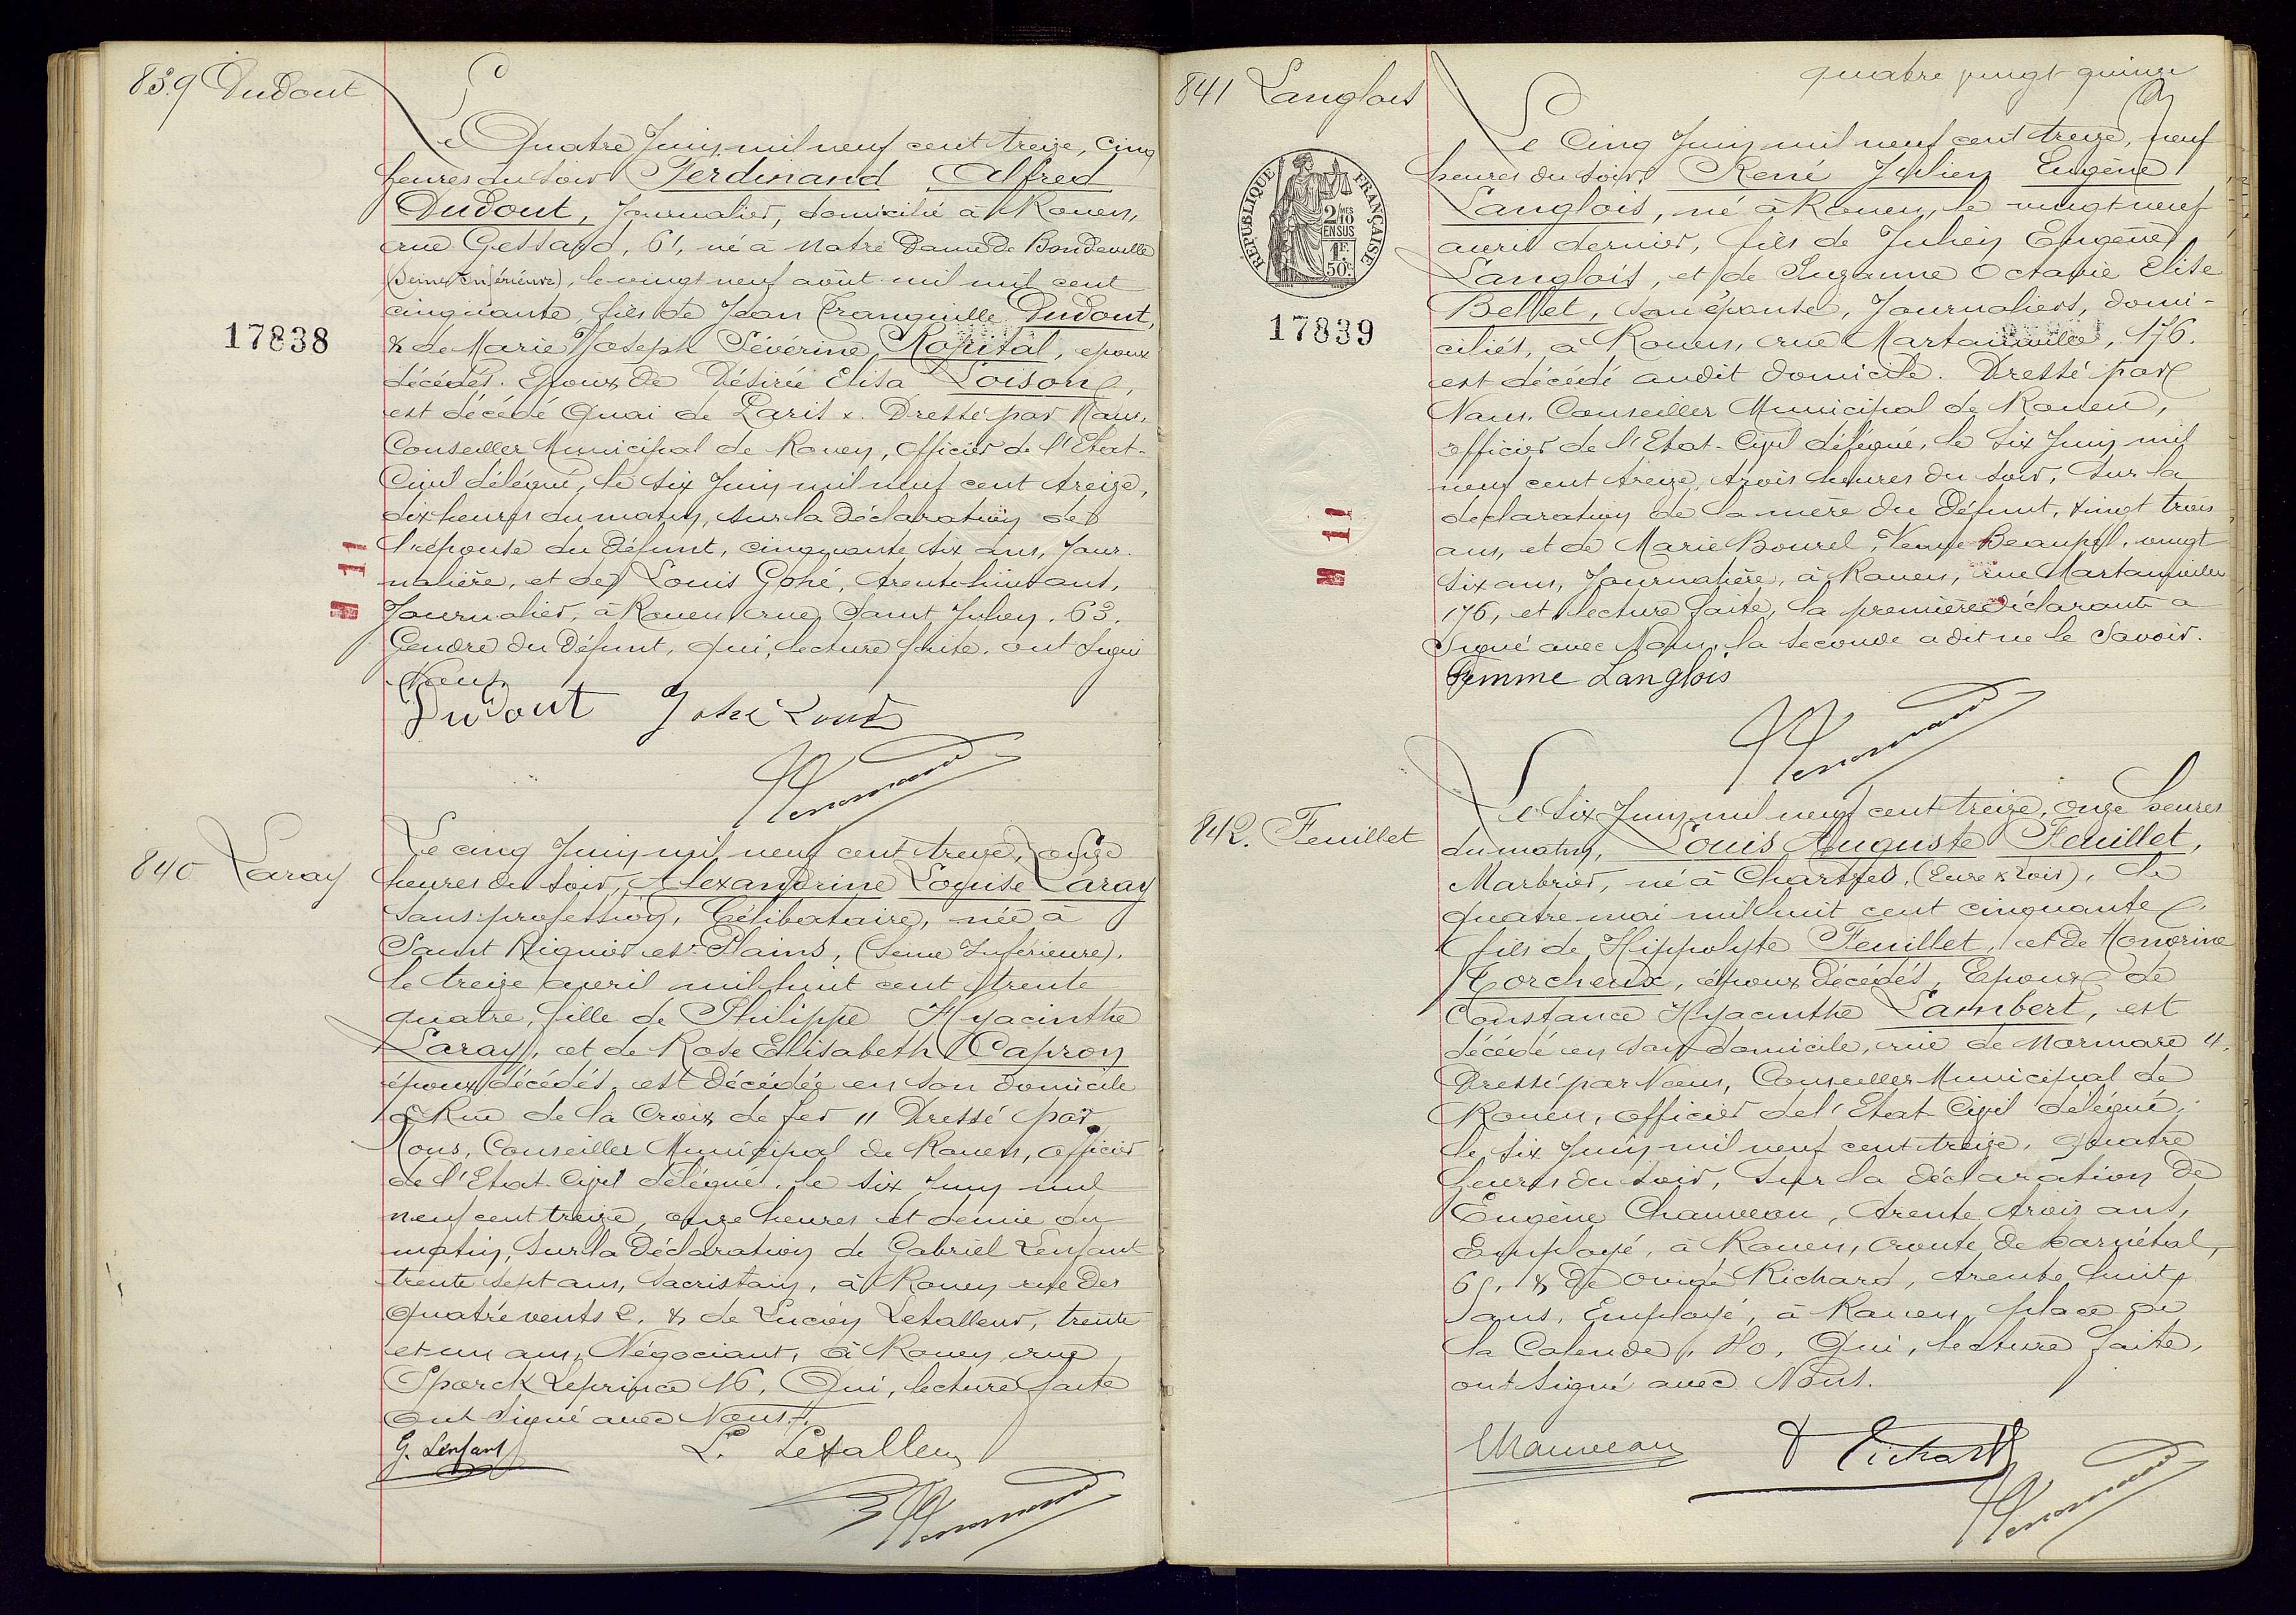 839 Dudout
Le Quatre Juin mil neuf cent treize, cinq
heures du soir Ferdinand Alfred
Dudout, Journalier, domicilié à Rouen,
rue Gessard, 61, né à Notre Dame de Bondeville
(Seine Inférieure), le vingt neuf août mil huit cent
cinquante, fils de Jean Tranquille Dudout,
17838
& de Marie Joseph Sévérine Hopital, époux
décédés. Epoux de Désirée Elisa Loison,
est décédé Quai de Paris x. Dressé par Nous,
Conseiller Municipal de Rouen, officier de l'Etat-
Civil délégué, le six Juin mil neuf cent treize,
dix heures du matin, sur la déclaration de
l'épouse du défunt, cinquante six ans, Jour-
nalière, et de Louis Gohé, trente huit ans,
N 11
Journalier, à Rouen rue Saint Julien, 63.
Gendre du défunt, qui, lecture faite, ont signé
Nous.
Dudout Gohé Louis
840 Laray
Le cinq Juin mil neuf cent treize, onze
heures du soir, Alexandrine Louise Laray
sans profession, Célibataire, née à
Saint Riquier es-Plains, (Seine Inférieure),
le treize avril mil huit cent trente
quatre, fille de Philippe Hyacinthe
Laray, et de Rose Elisabeth Capron
époux décédés, est décédée en son domicile
Rue de la Croix de fer 11 Dressé par
Nous, Conseiller Municipal de Rouen, officier
de l'Etat-Civil délégué, le six Juin mil
neuf cent treize, onze heures et demie du
matin, sur la Déclaration de Gabriel Lenfant
trente sept ans, sacristain, à Rouen rue des
Quatre vents 2. & de Lucien Letalleur, trente
et un ans, Négociant, à Rouen rue
Eponck Leprince 16, Qui, lecture faite
ont signé avec Nous.
G. Lenfant L. Letalleur
quatre vingt quinze
841 Langlois
Le Cinq Juin mil neuf cent treize, neuf
heures du soir, René Julien Eugène
Langlois, né à Rouen, le vingt neuf
avril dernier, fils de Julien Eugène
Langlois, et de Suzanne Octavie Elise
Bellet, son épouse, Journaliers, domi-
RÉPUBLIQUE FRANÇAISE
2/10 MES
EN SUS
1F.
50C.
17839
ciliés, à Rouen, rue Martainville, 176.
est décédé audit domicile. Dressé par
Nous, Conseiller Municipal de Rouen,
officier de l'Etat-Civil délégué, le six Juin mil
neuf cent treize, trois heures du soir, sur la
déclaration de la mère du défunt, vingt trois
N 11
ans, et de Marie Bourel, Veuve Beaupel, vingt
six ans, Journalière, à Rouen, rue Martainville
176, et lecture faite, la première déclarante a
signé avec Nous, la seconde a dit ne le savoir.
femme Langlois
842. Feuillet
Le six Juin mil neuf cent treize, onze heures
du matin, Louis Auguste Feuillet,
Marbrier, né à Chartres, (Eure & Loir), le
quatre mai mil huit cent cinquante,
fils de Hippolyte Feuillet, et de Honorine
Torcheux, époux décédés, Epoux de
Constance Hyacinthe Lambert, est
décédé en son domicile, rue de Normare 4.
Dressé par Nous, Conseiller Municipal de
Rouen, officier de l'Etat Civil délégué,
le six Juin mil neuf cent treize, quatre
heures du soir, sur la déclaration de
Eugène Chauveau, trente trois ans,
Employé, à Rouen, route de Darnétal,
& de Ovide Richard, trente huit
ans, Employé, à Rouen, place de
la Calende, 40, Qui, lecture faite,
ont signé avec Nous.
Chauveau Richard